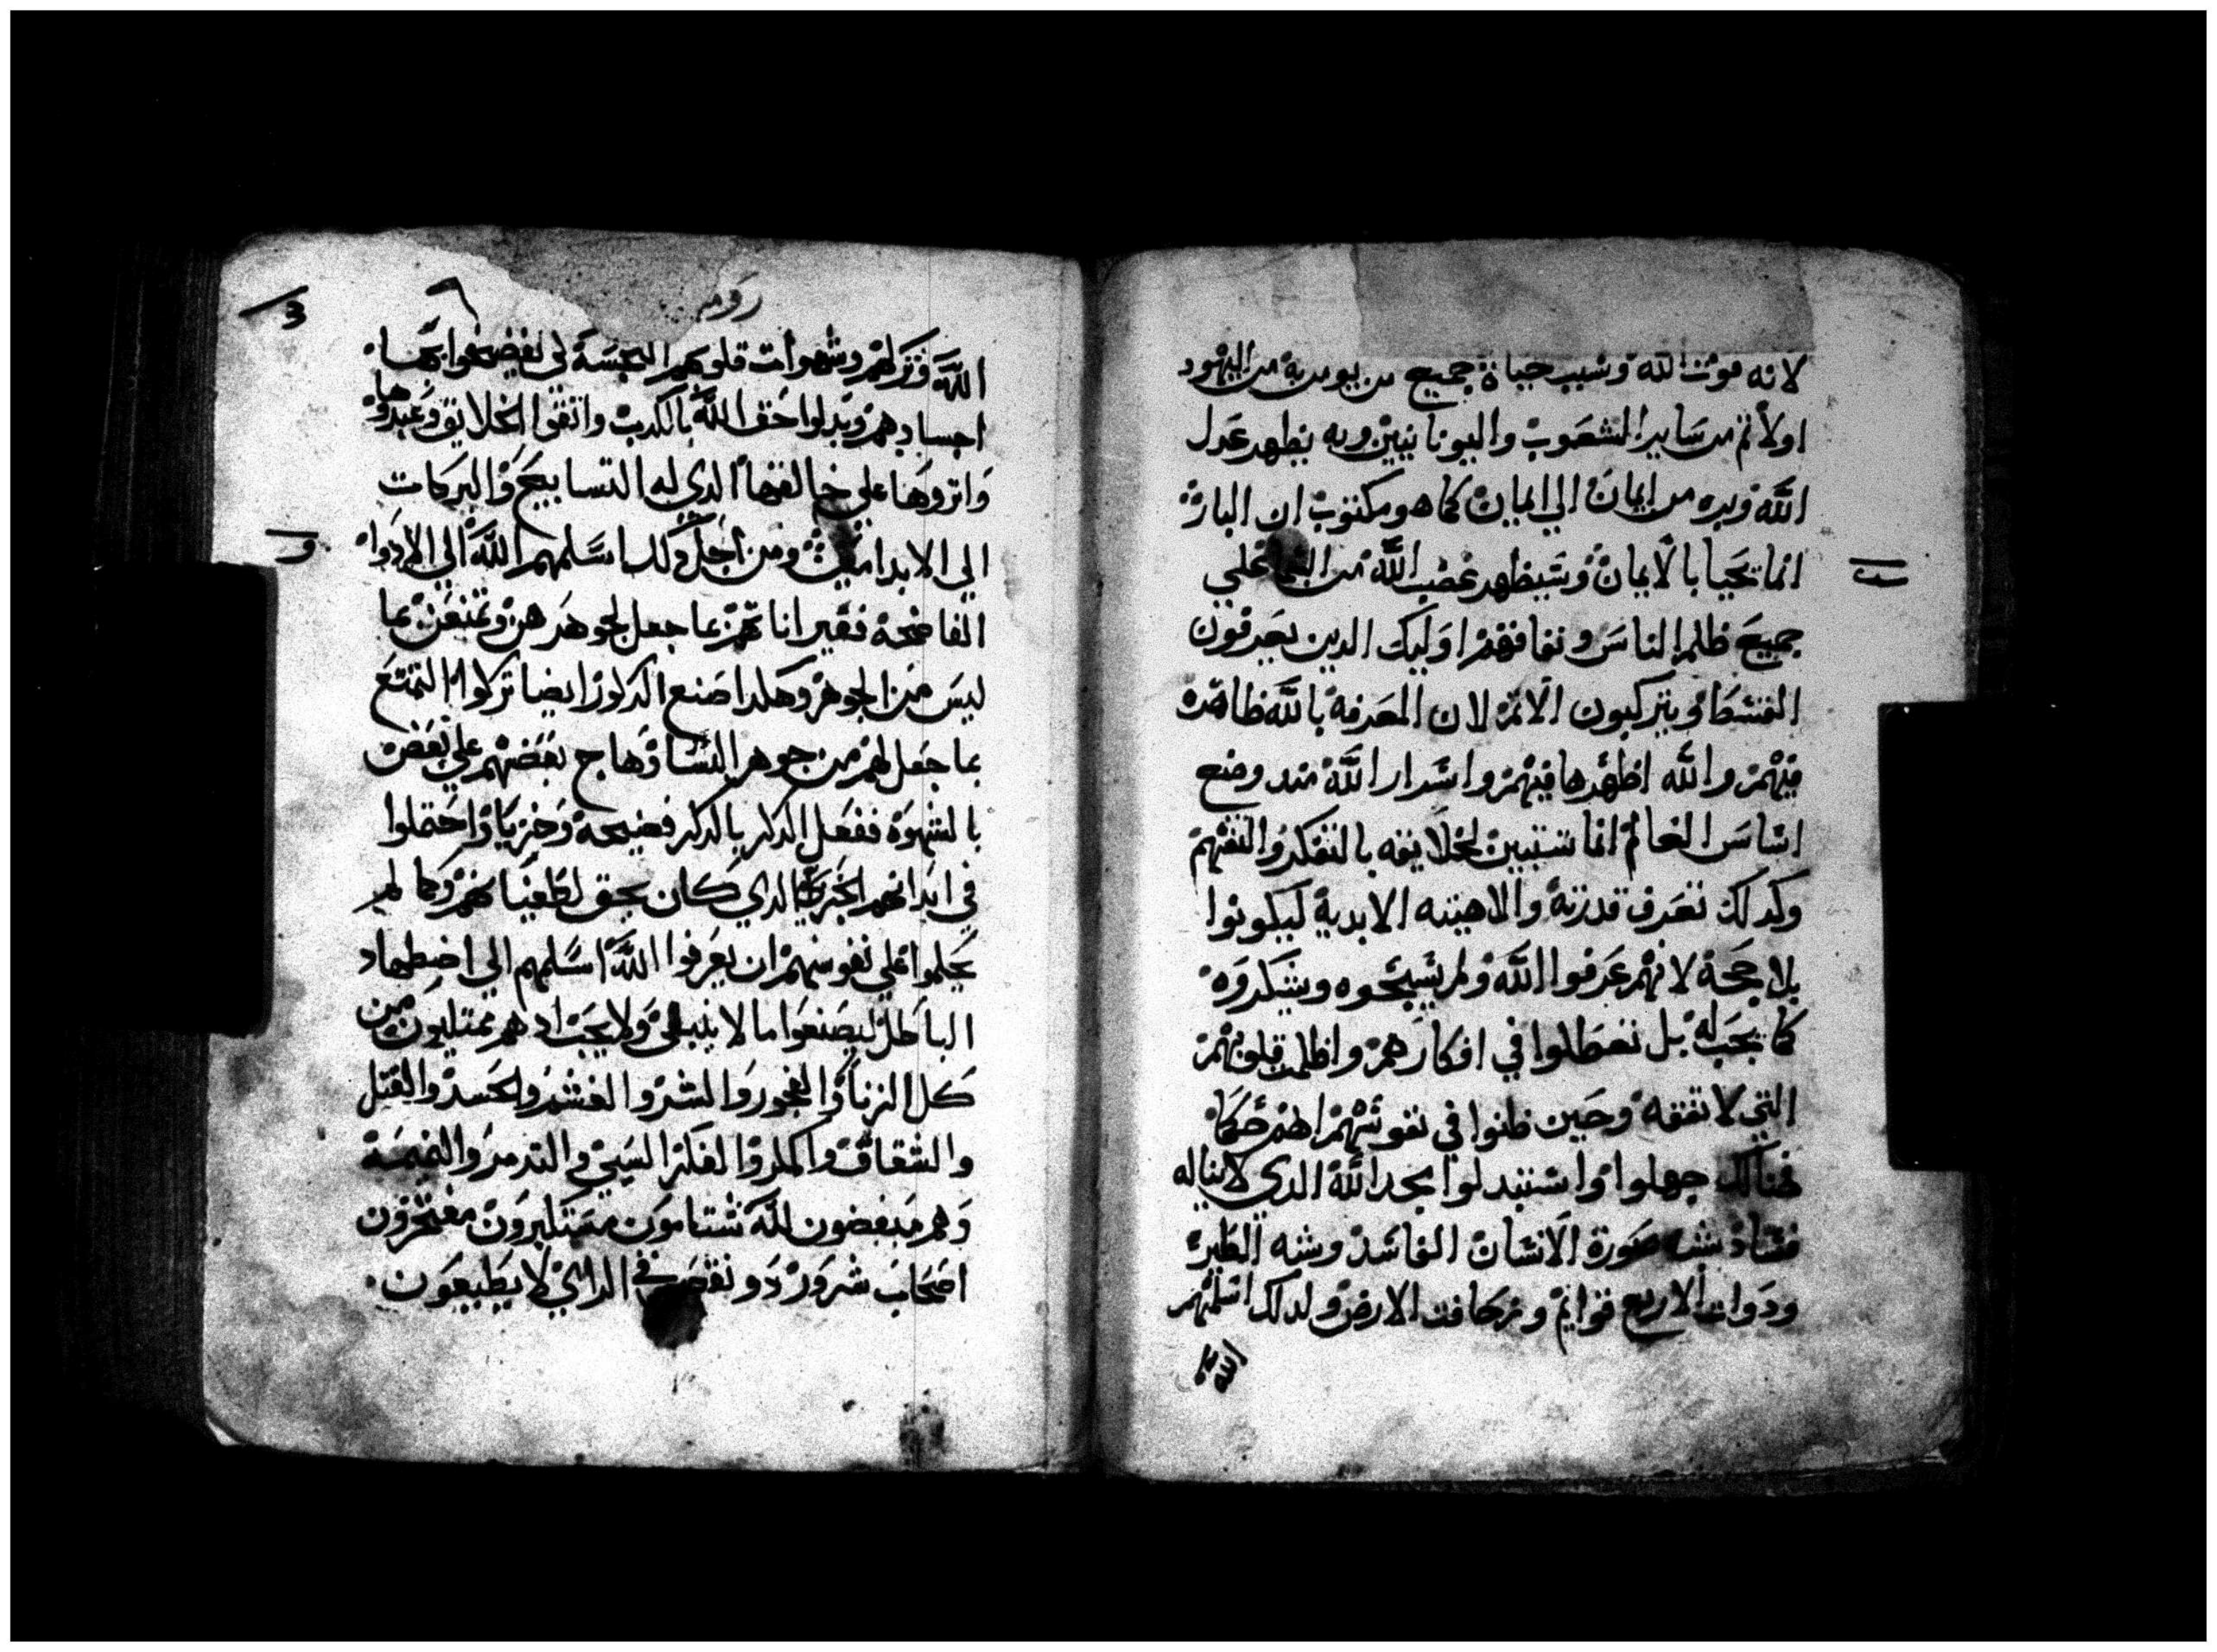 لانه قوت الله وسبب حياة جميع من يومن به من اليهود
اولا ثم من ساير الشعوب واليونانيين وبه يظهر عدل
الله وبره من ايمان الي ايمان كما هو مكتوب ان البار
انما يحيا بالايمان وسيظهر غضب الله من السما علي
جميع ظلم الناس ونفاقهم اوليك الدين يعرفون
القسط ويرتكبون الاتم لان المعرفة بالله ظاهرة
فيهم والله اظهرها فيهم واسرار الله مند وضع
اساس العالم انما تستبين لخلايقه بالتفكر والتفهم
وكدلك تعرف قدرته والاهيته الابدية ليكونوا
بلا حجة لانهم عرفوا الله ولم يسبحوه ويشكروه
كما يجب له بل تعطلوا في افكارهم واظلمت قلوبهم
التي لا تفقه وحين ظنوا في نفوسهم انهم حكما
هنالك جهلوا واستبدلوا مجد الله الدي لا يناله
فساد بشبه صورة الانسان الفاسد وشبه الطير
ودوات الاربع قوايم وزحافت الارض ولدلك اسلمهم
الله
رومية
الله وتركهم وشهوات قلوبهم النجسة لكي يفضحوا بها
اجسادهم وبدلوا حق الله بالكدب واتقوا الخلايق وعبدوها
واتروها علي خالقها الدي له التسابيح والبركات
الي الابد امين ومن اجل دلك اسلمهم الله الي الادوا
الفاضحة فغير اناتهم عما جعل لجوهرهن وتمتعن بما
ليس من الجوهر وهكدا صنع الدكور ايضا تركوا التمتع
بما جعل لهم من جوهر النسا وهاج بعضهم علي بعض
بالشهوة ففعل الدكر بالدكر فضيحة وخزيا واحتملوا
في ابدانهم الجزا الدي كان يحق لطغيانهم وكما لم
يحكموا علي نفوسهم ان يعرفوا الله اسلمهم الي اضطهاد
الباطل ليصنعوا ما لا ينبغي ولا يجب اد هم ممتليون من
كل الزنا والفجور والشر والغشم والحسد والقتل
والشقاق والمكر والفكر السيي والتدمر والنميمة
وهم مبغضون لله شتامون متكبرون مفتخرون
اصحاب شرور دو نقص في الراي لا يطيعون